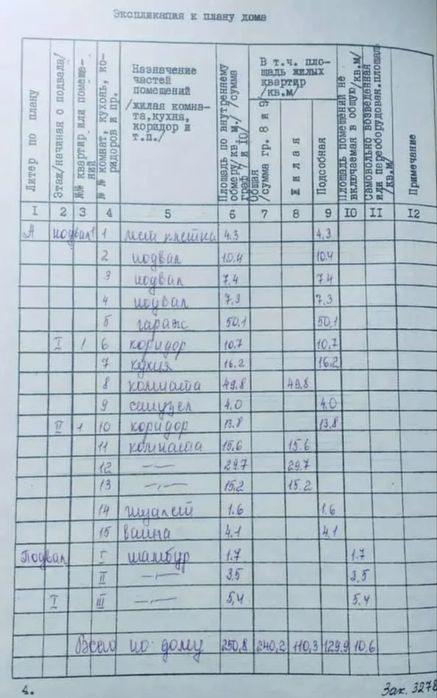 Экспликация к плану дома
Литер по плану
Этаж/начиная с подвала/
№№ квартир или помещений
№ № комнат, кухонь, коридоров и пр.
Назначение частей помещений /жилая комната,кухня, коридор и т.п./
Площадь по внутреннему обмеру/кв.м./ /сумма граф 7 и 10/
В т.ч. площадь жилых квартир /кв.м/
Общая /сумма гр. 8 и 9/
Жилая
Подсобная
Площадь помещений не включаемая в общую/кв.м/
Самовольно возведенная или переоборудов.площадь /кв.м/
Примечание
I 2 3 4 5 6 7 8 9 10 II I2
А подвал 1 1 лест.клетка 4.3 4,3
2 подвал 10.4 10,4
3 подвал 7.4 7.4
4 подвал 7,3 7.3
5 гараж 50,1 50,1
I 1 6 коридор 10.7 10,7
7 кухня 16,2 16,2
8 комната 49,8 49,8
9 санузел 4.0 4.0
II 1 10 коридор 13.8 13,8
11 комната 15.6 15.6
12 —"— 29.7 29.7
13 —"— 15.2 15.2
14 туалет 1.6 1.6
15 ванна 4.1 4,1
Подвал I тамбур 1.7 1.7
II —"— 3.5 3,5
I III —"— 5,4 5.4
Всего по дому 250,8 240,2 110,3 129.9 10,6
4.
Зак. 3278